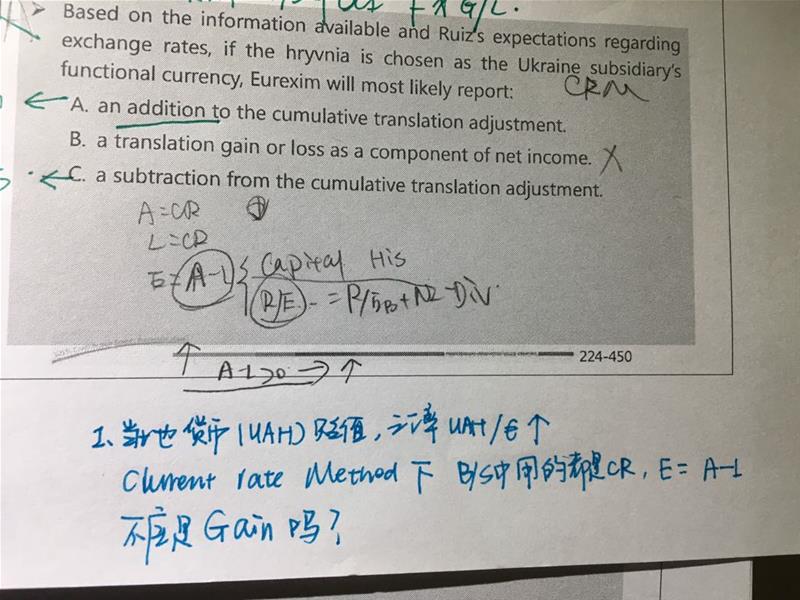 FX G/L.
➤ Based on the information available and Ruiz's expectations regarding
exchange rates, if the hryvnia is chosen as the Ukraine subsidiary's
functional currency, Eurexim will most likely report:
CRM
A. an addition to the cumulative translation adjustment.
B. a translation gain or loss as a component of net income. X
C. a subtraction from the cumulative translation adjustment.
A=CR ⊕
L=CR
E=A-L { Capital His
R/E = R/E BB + NI - Div
224-450
↑ A-L>0 → ↑
1、当地货币(UAH)贬值,汇率UAH/€↑
Current rate Method 下 B/S中用的都是CR, E= A-L
不应是Gain吗?